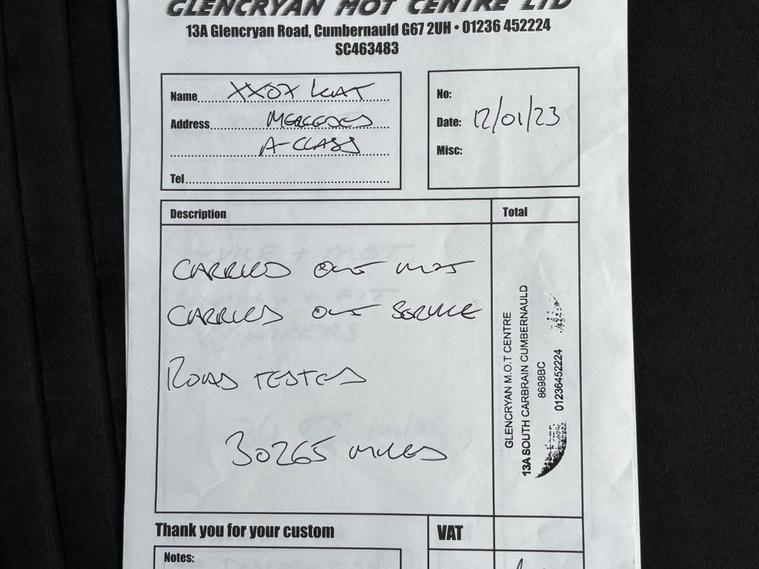 GLENCRYAN MOT CENTRE LTD
13A Glencryan Road, Cumbernauld G67 2UH • 01236 452224
SC463483
Name
Address MERCEDES
A-CLASS
Tel
No:
Date: 12/01/23
Misc:
Description Total
CARRIED OUT MOT
CARRIED OUT SERVICE
ROAD TESTED
30265 MILES
GLENCRYAN M.O.T CENTRE
13A SOUTH CARBRAIN CUMBERNAULD
8698BC
01236452224
Thank you for your custom
VAT
Notes: